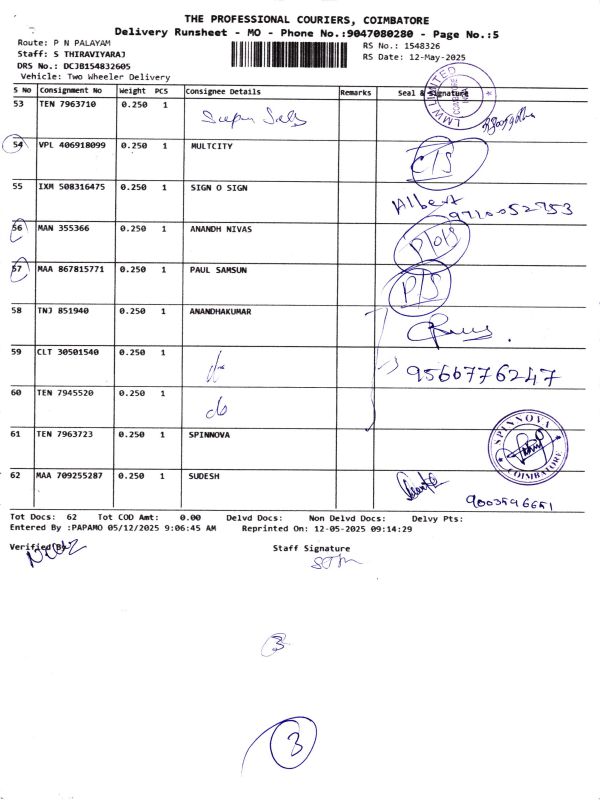 THE PROFESSIONAL COURIERS, COIMBATORE
Delivery Runsheet - MO - Phone No.:9047080280 - Page No.:5
Route: P N PALAYAM
Staff: S THIRAVIYARAJ
DRS No.: DCJB154832605
Vehicle: Two Wheeler Delivery
RS No.: 1548326
RS Date: 12-May-2025
S No Consignment No Weight PCS Consignee Details Remarks Seal & Signature
LMW LIMITED
53 TEN 7963710 0.250 1
54 VPL 406918099 0.250 1 MULTCITY C/S
55 IXM 508316475 0.250 1 SIGN O SIGN Albert
9710052753
56 MAN 355366 0.250 1 ANANDH NIVAS
57 MAA 867815771 0.250 1 PAUL SAMSUN P/S
58 TNJ 851940 0.250 1 ANANDHAKUMAR
59 CLT 30501540 0.250 1 9566776247
60 TEN 7945520 0.250 1 do
61 TEN 7963723 0.250 1 SPINNOVA SPINNOVA COIMBATORE
62 MAA 709255287 0.250 1 SUDESH
9003596651
Tot Docs: 62 Tot COD Amt: 0.00 Delvd Docs: Non Delvd Docs: Delvy Pts:
Entered By :PAPAMO 05/12/2025 9:06:45 AM Reprinted On: 12-05-2025 09:14:29
Verified By
Staff Signature
3
3